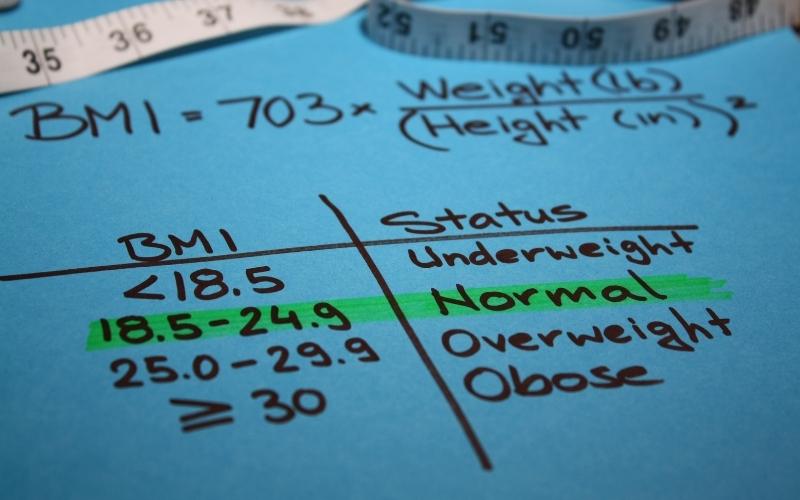 35 36 37 38
52 51 50 49 48
BMI = 703 × Weight (lb)
(Height (in))²
BMI Status
<18.5 Underweight
18.5-24.9 Normal
25.0-29.9 Overweight
≥ 30 Obose